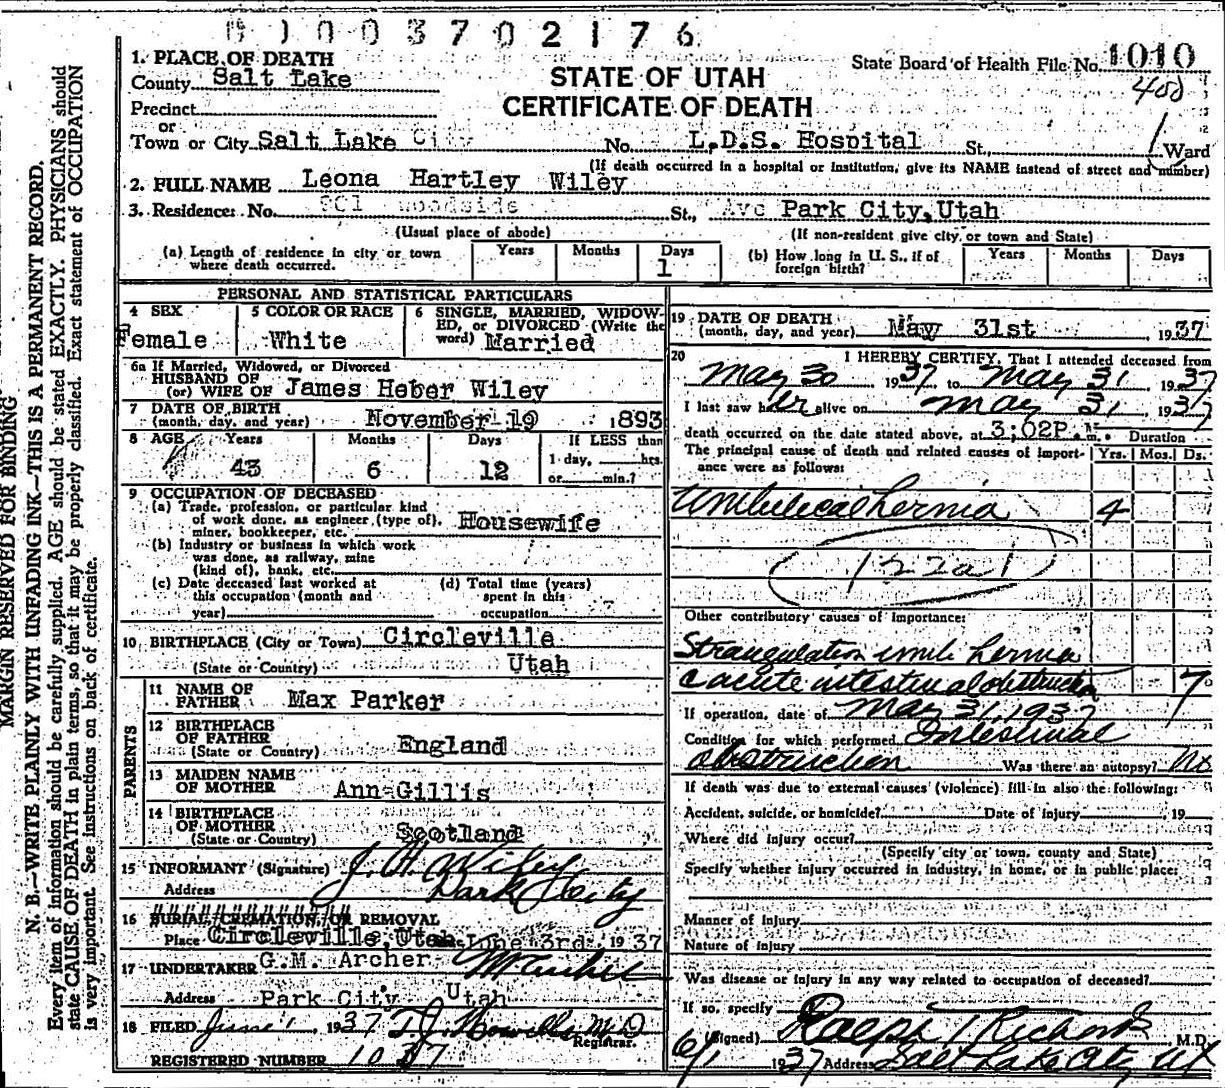 D 1 0 0 3 7 0 2 1 7 6
MARGIN RESERVED FOR BINDING
N. B.—WRITE PLAINLY WITH UNFADING INK—THIS IS A PERMANENT RECORD.
Every item of information should be carefully supplied. AGE should be stated EXACTLY. PHYSICIANS should
state CAUSE OF DEATH in plain terms, so that it may be properly classified. Exact statement of OCCUPATION
is very important. See instructions on back of certificate.
1. PLACE OF DEATH
County Salt Lake
Precinct
or
Town or City Salt Lake City
STATE OF UTAH
CERTIFICATE OF DEATH
State Board of Health File No. 1010
400
No. L.D.S. Hospital St. 1 Ward
(If death occurred in a hospital or institution, give its NAME instead of street and number)
2. FULL NAME Leona Hartley Wiley
3. Residence: No. Woodside St., Ave Park City, Utah
(Usual place of abode) (If non-resident give city or town and State)
(a) Length of residence in city or town where death occurred. Years Months Days 1
(b) How long in U. S., if of foreign birth? Years Months Days
PERSONAL AND STATISTICAL PARTICULARS
4 SEX Female
5 COLOR OR RACE White
6 SINGLE, MARRIED, WIDOWED, or DIVORCED (Write the word) Married
6a If Married, Widowed, or Divorced
HUSBAND OF
(or) WIFE OF James Heber Wiley
7 DATE OF BIRTH
(month, day, and year) November 19 1893
8 AGE Years Months Days If LESS than
43 6 12 1 day, hrs.
or min.?
9 OCCUPATION OF DECEASED
(a) Trade, profession, or particular kind
of work done, as engineer (type of),
miner, bookkeeper, etc. Housewife
(b) Industry or business in which work
was done, as railway, mine
(kind of), bank, etc.
(c) Date deceased last worked at
this occupation (month and
year)
(d) Total time (years)
spent in this
occupation
10 BIRTHPLACE (City or Town) Circleville
(State or Country) Utah
PARENTS
11 NAME OF
FATHER Max Parker
12 BIRTHPLACE
OF FATHER
(State or Country) England
13 MAIDEN NAME
OF MOTHER Ann Gillis
14 BIRTHPLACE
OF MOTHER
(State or Country) Scotland
15 INFORMANT (Signature) J. H. Wiley
Address Park City
16 BURIAL, CREMATION, OR REMOVAL
Place Circleville, Utah June 3rd 1937
17 UNDERTAKER G.M. Archer
Address Park City Utah
18 FILED June 1 1937 M D
Registrar.
REGISTERED NUMBER 1037
19 DATE OF DEATH
(month, day, and year) May 31st 1937
20 I HEREBY CERTIFY, That I attended deceased from
May 30 1937 to May 31 1937
I last saw her alive on May 31 1937
death occurred on the date stated above, at 3:02P.m. Duration
The principal cause of death and related causes of importance were as follows: Yrs. Mos. Ds.
Umbilical hernia 4
122a1
Other contributory causes of importance:
Strangulation umb hernia
c acute intestinal obstruction 7
If operation, date of May 31, 1937
Condition for which performed Intestinal
obstruction Was there an autopsy? No
If death was due to external causes (violence) fill in also the following:
Accident, suicide, or homicide? Date of injury , 19
Where did injury occur?
(Specify city or town, county and State)
Specify whether injury occurred in industry, in home, or in public place:
Manner of injury
Nature of injury
Was disease or injury in any way related to occupation of deceased?
If so, specify
(Signed) Ralph T Richards M.D.
6/1 1937 Address Salt Lake City Ut